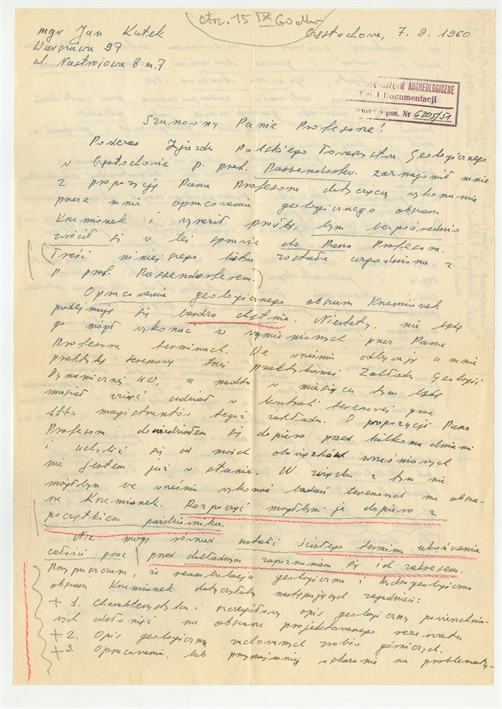 otrz. 15 IX 60
mgr Jan Kutek
Warszawa 97
ul. Nastrojowa 8 m. 7
Częstochowa, 7. 9. 1960
ARCHEOLOGICZNE
Dokumentacji
Nr 6205/51
Szanowny Panie Profesorze!
Podczas Zjazdu Polskiego Towarzystwa Geologicznego
w Częstochowie p. prof. Passendorfer zaznajomił mnie
z propozycją Pana Profesora dotyczącą wykonania
przeze mnie opracowania geologicznego obszaru
Krzemionek i wyraził prośbę, bym bezpośrednio
zwrócił się w tej sprawie do Pana Profesora.
(Treść niniejszego listu została uzgodniona z
p. prof. Passendorferem.)
Opracowania geologicznego obszaru Krzemionek
podejmuję się bardzo chętnie. Niestety, nie będę
go mógł wykonać w wymienionych przez Pana
Profesora terminach. We wrześniu odbywają u mnie
praktykę terenową praktykanci Zakładu Geologii
Dynamicznej UW, a nadto w miesiącu tym będę
musiał wziąć udział w kontroli terenowej prac
magistrantów tegoż zakładu. O propozycji Pana
Profesora dowiedziałem się dopiero przed kilkoma dniami
i uchylić się od moich obowiązków wrześniowych
nie jestem już w stanie. W związku z tym nie
mógłbym we wrześniu wykonać badań terenowych na obsza-
rze Krzemionek. Rozpocząć mógłbym je dopiero z
początkiem października.
Nie mogę również ustalić ścisłego terminu ukończenia
całości prac przed dokładnym zapoznaniem się z ich zakresem.
Przypuszczam, że dokumentacja geologiczna
obszaru Krzemionek dotyczyłaby następujących zagadnień:
+ 1. Charakterystyka i szczegółowy opis geologiczny powierzchnio-
wych odsłonięć na obszarze projektowanego rezerwatu
+ 2. Opis geologiczny zachowanych robót górniczych.
+ 3. Opracowanie, lub przynajmniej wskazanie na problematy-